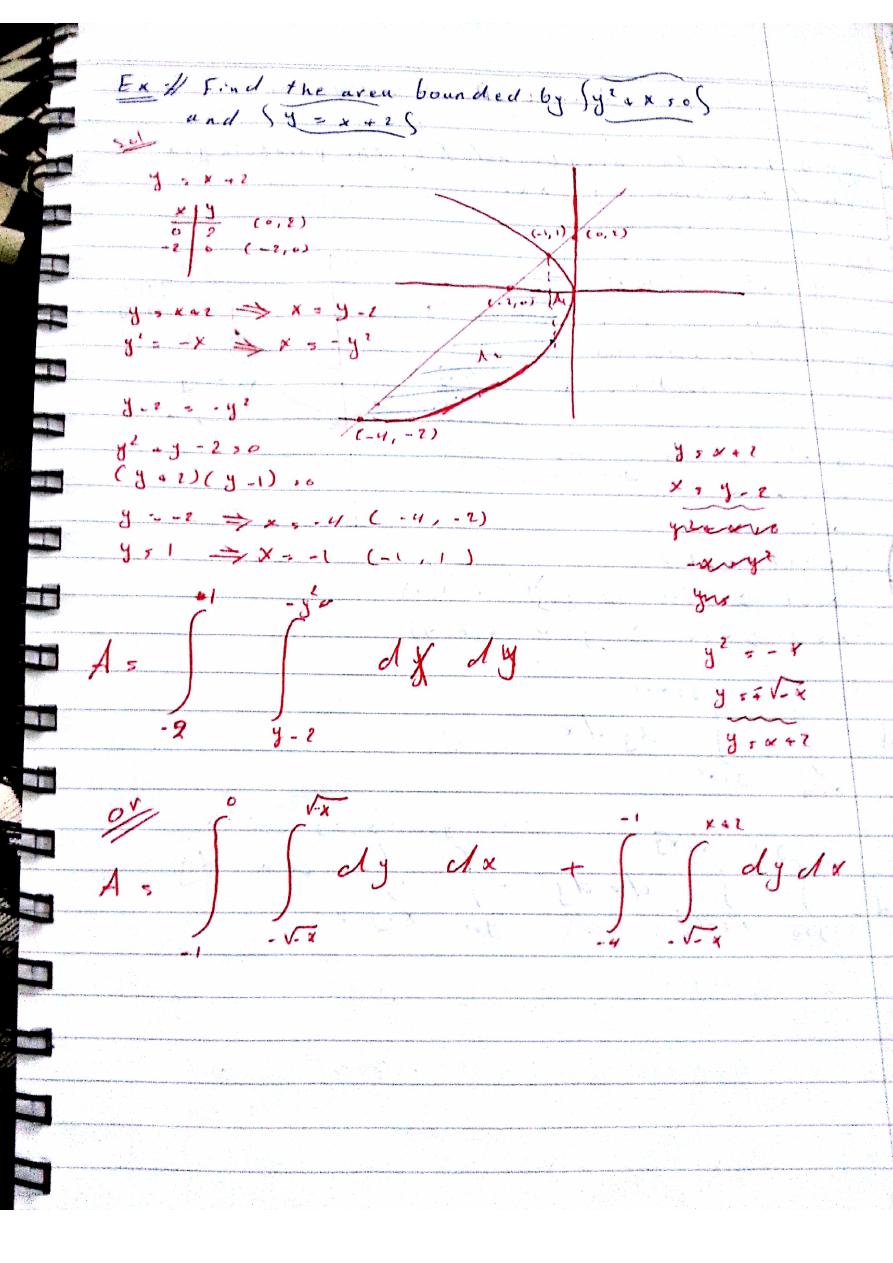 Ex // Find the area bounded by {y² + x = 0}
and {y = x + 2}
sol
y = x + 2
x | y
0 | 2 (0, 2)
-2 | 0 (-2, 0)
(-1, 1) (0, 2)
(-2, 0) A₁
A₂
(-4, -2)
y = x + 2 ⇒ x = y - 2
y² = -x ⇒ x = -y²
y - 2 = -y²
y² + y - 2 = 0
(y + 2)(y - 1) = 0
y = -2 ⇒ x = -4 (-4, -2)
y = 1 ⇒ x = -1 (-1, 1)
y = x + 2
x = y - 2
y² = -x
y = ∓√-x
y = x + 2
A = ∫_{-2}^{1} ∫_{y-2}^{-y²} dx dy
or
A = ∫_{-1}^{0} ∫_{-√-x}^{√-x} dy dx + ∫_{-4}^{-1} ∫_{-√-x}^{x+2} dy dx